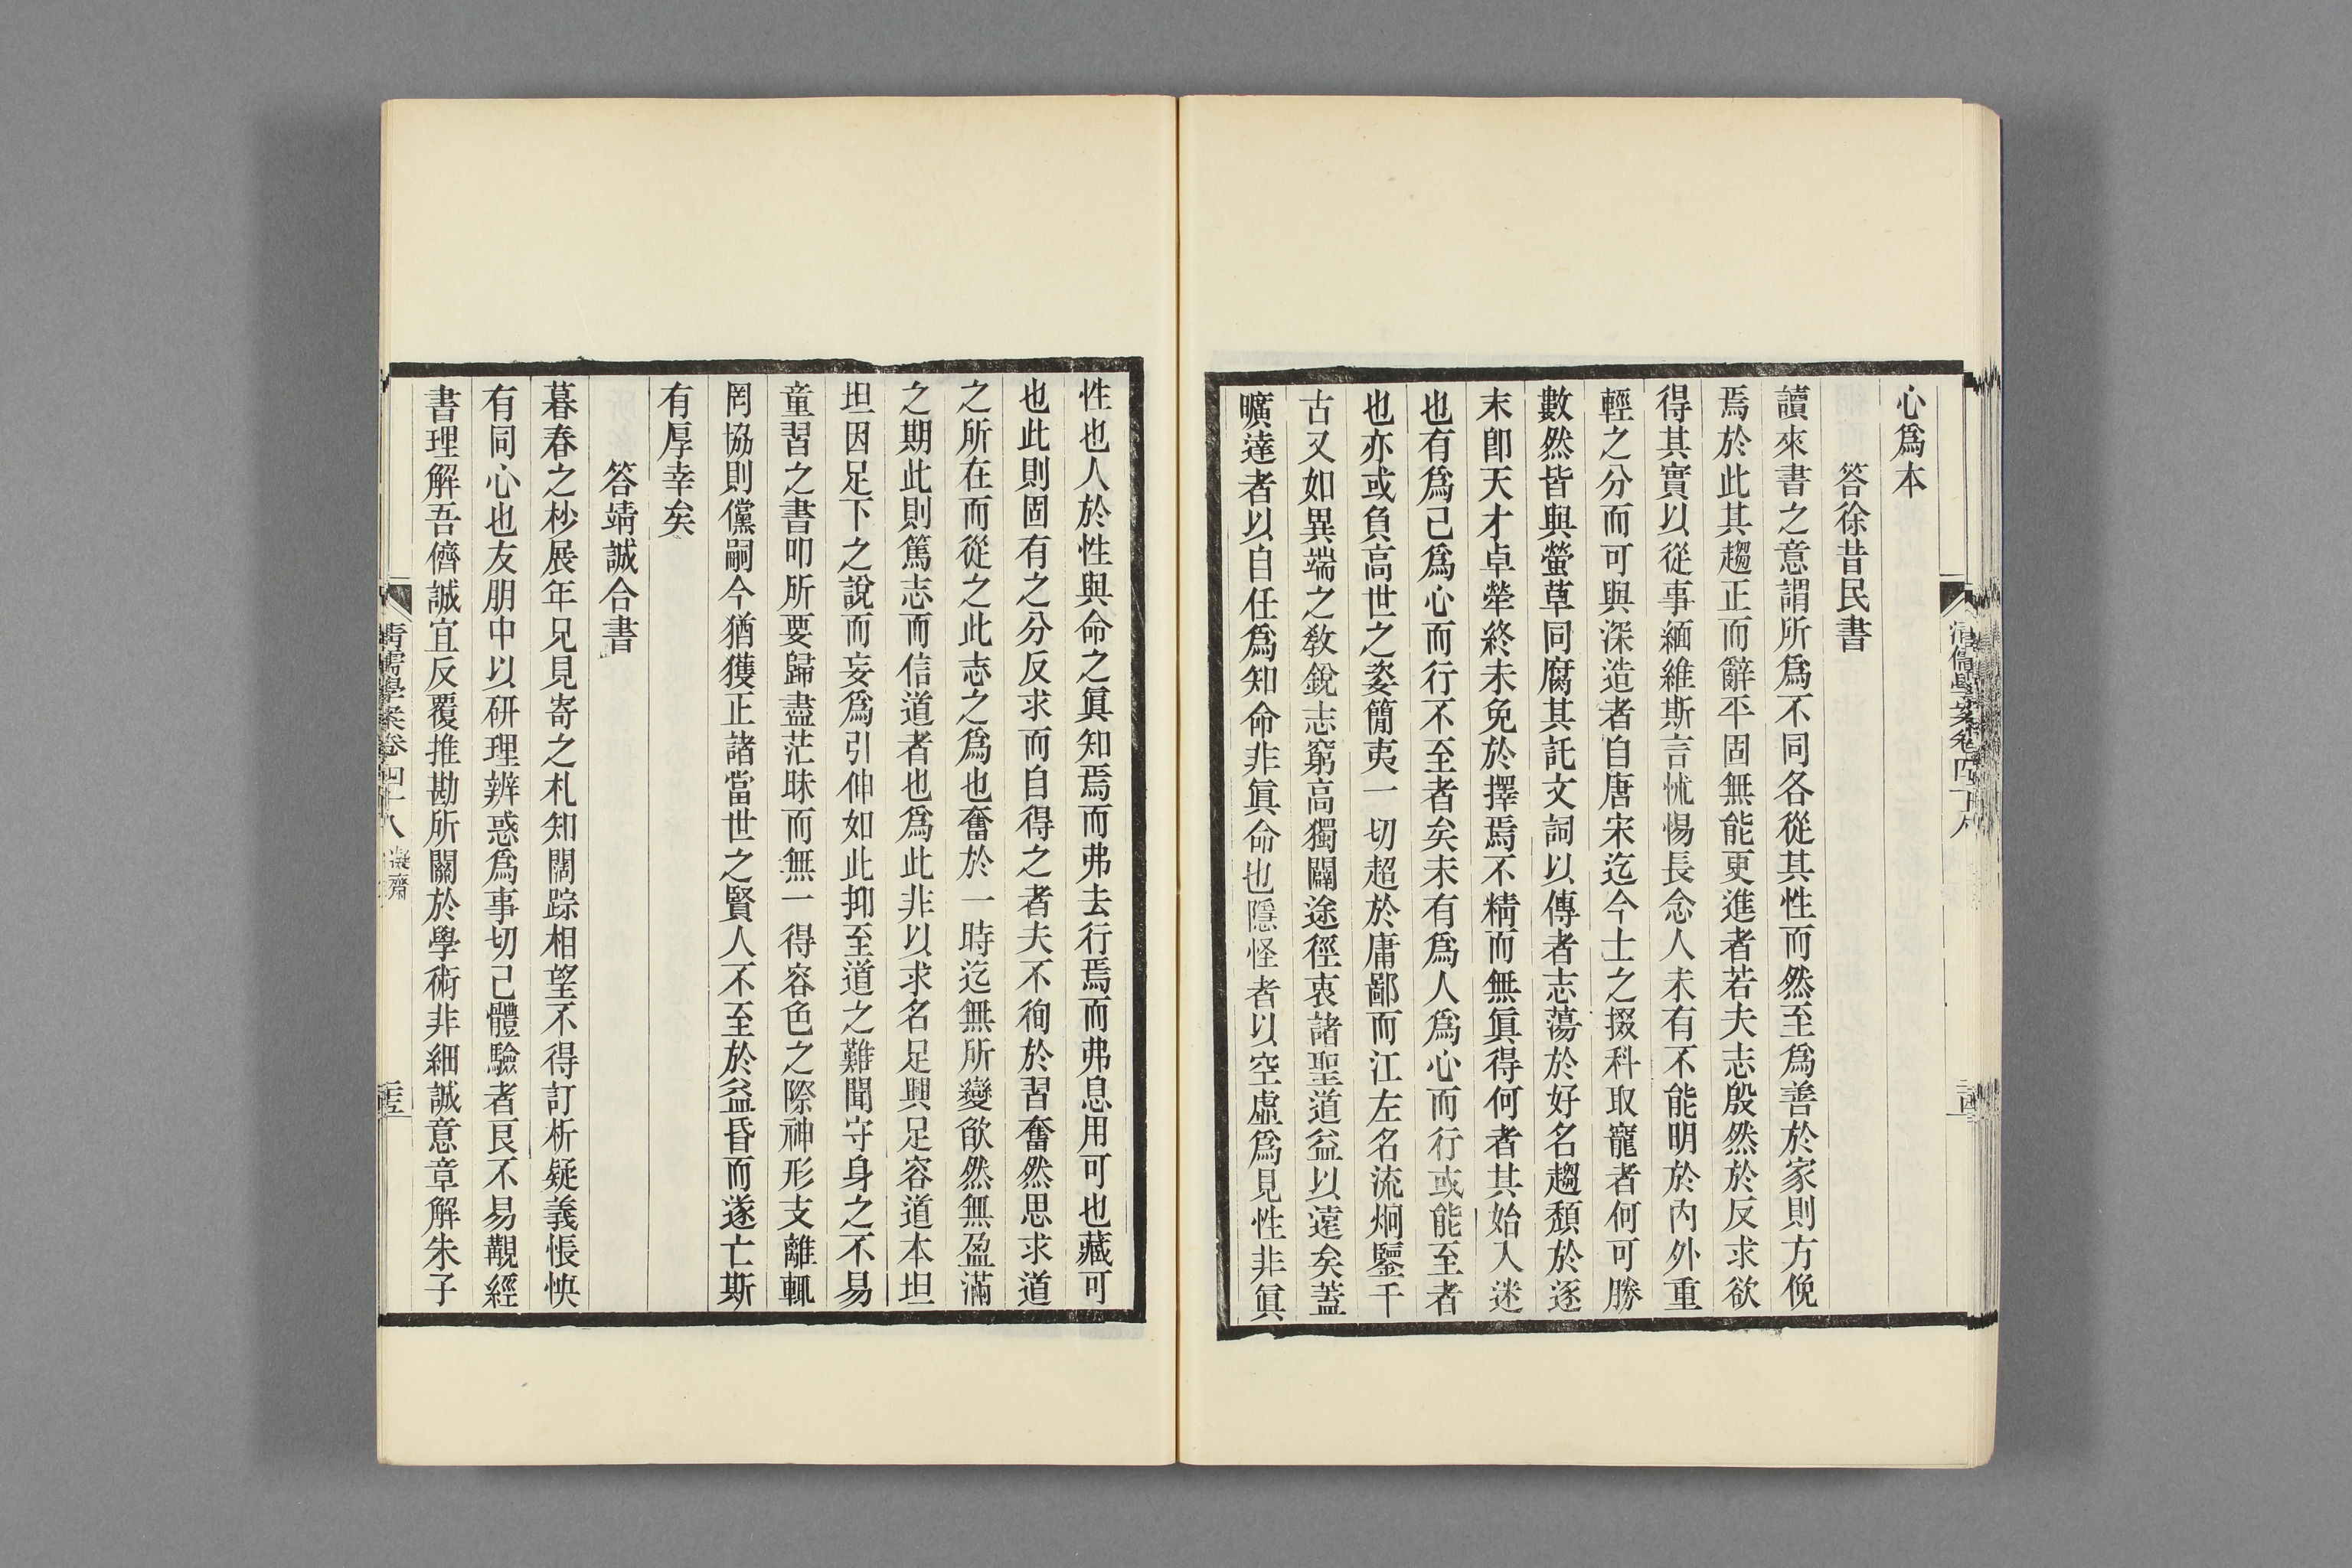 心爲本
答徐昔民書
讀來書之意謂所爲不同各從其性而然至爲善於家則方俛
焉於此其趨正而辭平固無能更進者若夫志殷然於反求欲
得其實以從事緬維斯言怵惕長念人未有不能明於內外重
輕之分而可與深造者自唐宋迄今士之掇科取寵者何可勝
數然皆與螢草同腐其託文詞以傳者志蕩於好名趨頹於逐
末卽天才卓犖終未免於擇焉不精而無眞得何者其始入迷
也有爲己爲心而行不至者矣未有爲人爲心而行或能至者
也亦或負高世之姿簡夷一切超於庸鄙而江左名流炯鑒千
古又如異端之敎銳志窮高獨闢途徑衷諸聖道益以遠矣蓋
曠達者以自任爲知命非眞命也隱怪者以空虛爲見性非眞
性也人於性與命之眞知焉而弗去行焉而弗息用可也藏可
也此則固有之分反求而自得之者夫不徇於習奮然思求道
之所在而從之此志之爲也奮於一時迄無所變欿然無盈滿
之期此則篤志而信道者也爲此非以求名足興足容道本坦
坦因足下之說而妄爲引伸如此抑至道之難聞守身之不易
童習之書叩所要歸盡茫昧而無一得容色之際神形支離輒
罔協則儻嗣今猶獲正諸當世之賢人不至於益昏而遂亡斯
有厚幸矣
答靖誠合書
暮春之杪展年兄見寄之札知闊踪相望不得訂析疑義悵怏
有同心也友朋中以硏理辨惑爲事切己體驗者良不易覯經
書理解吾儕誠宜反覆推勘所關於學術非細誠意章解朱子
清儒學案卷四十八 凝齋